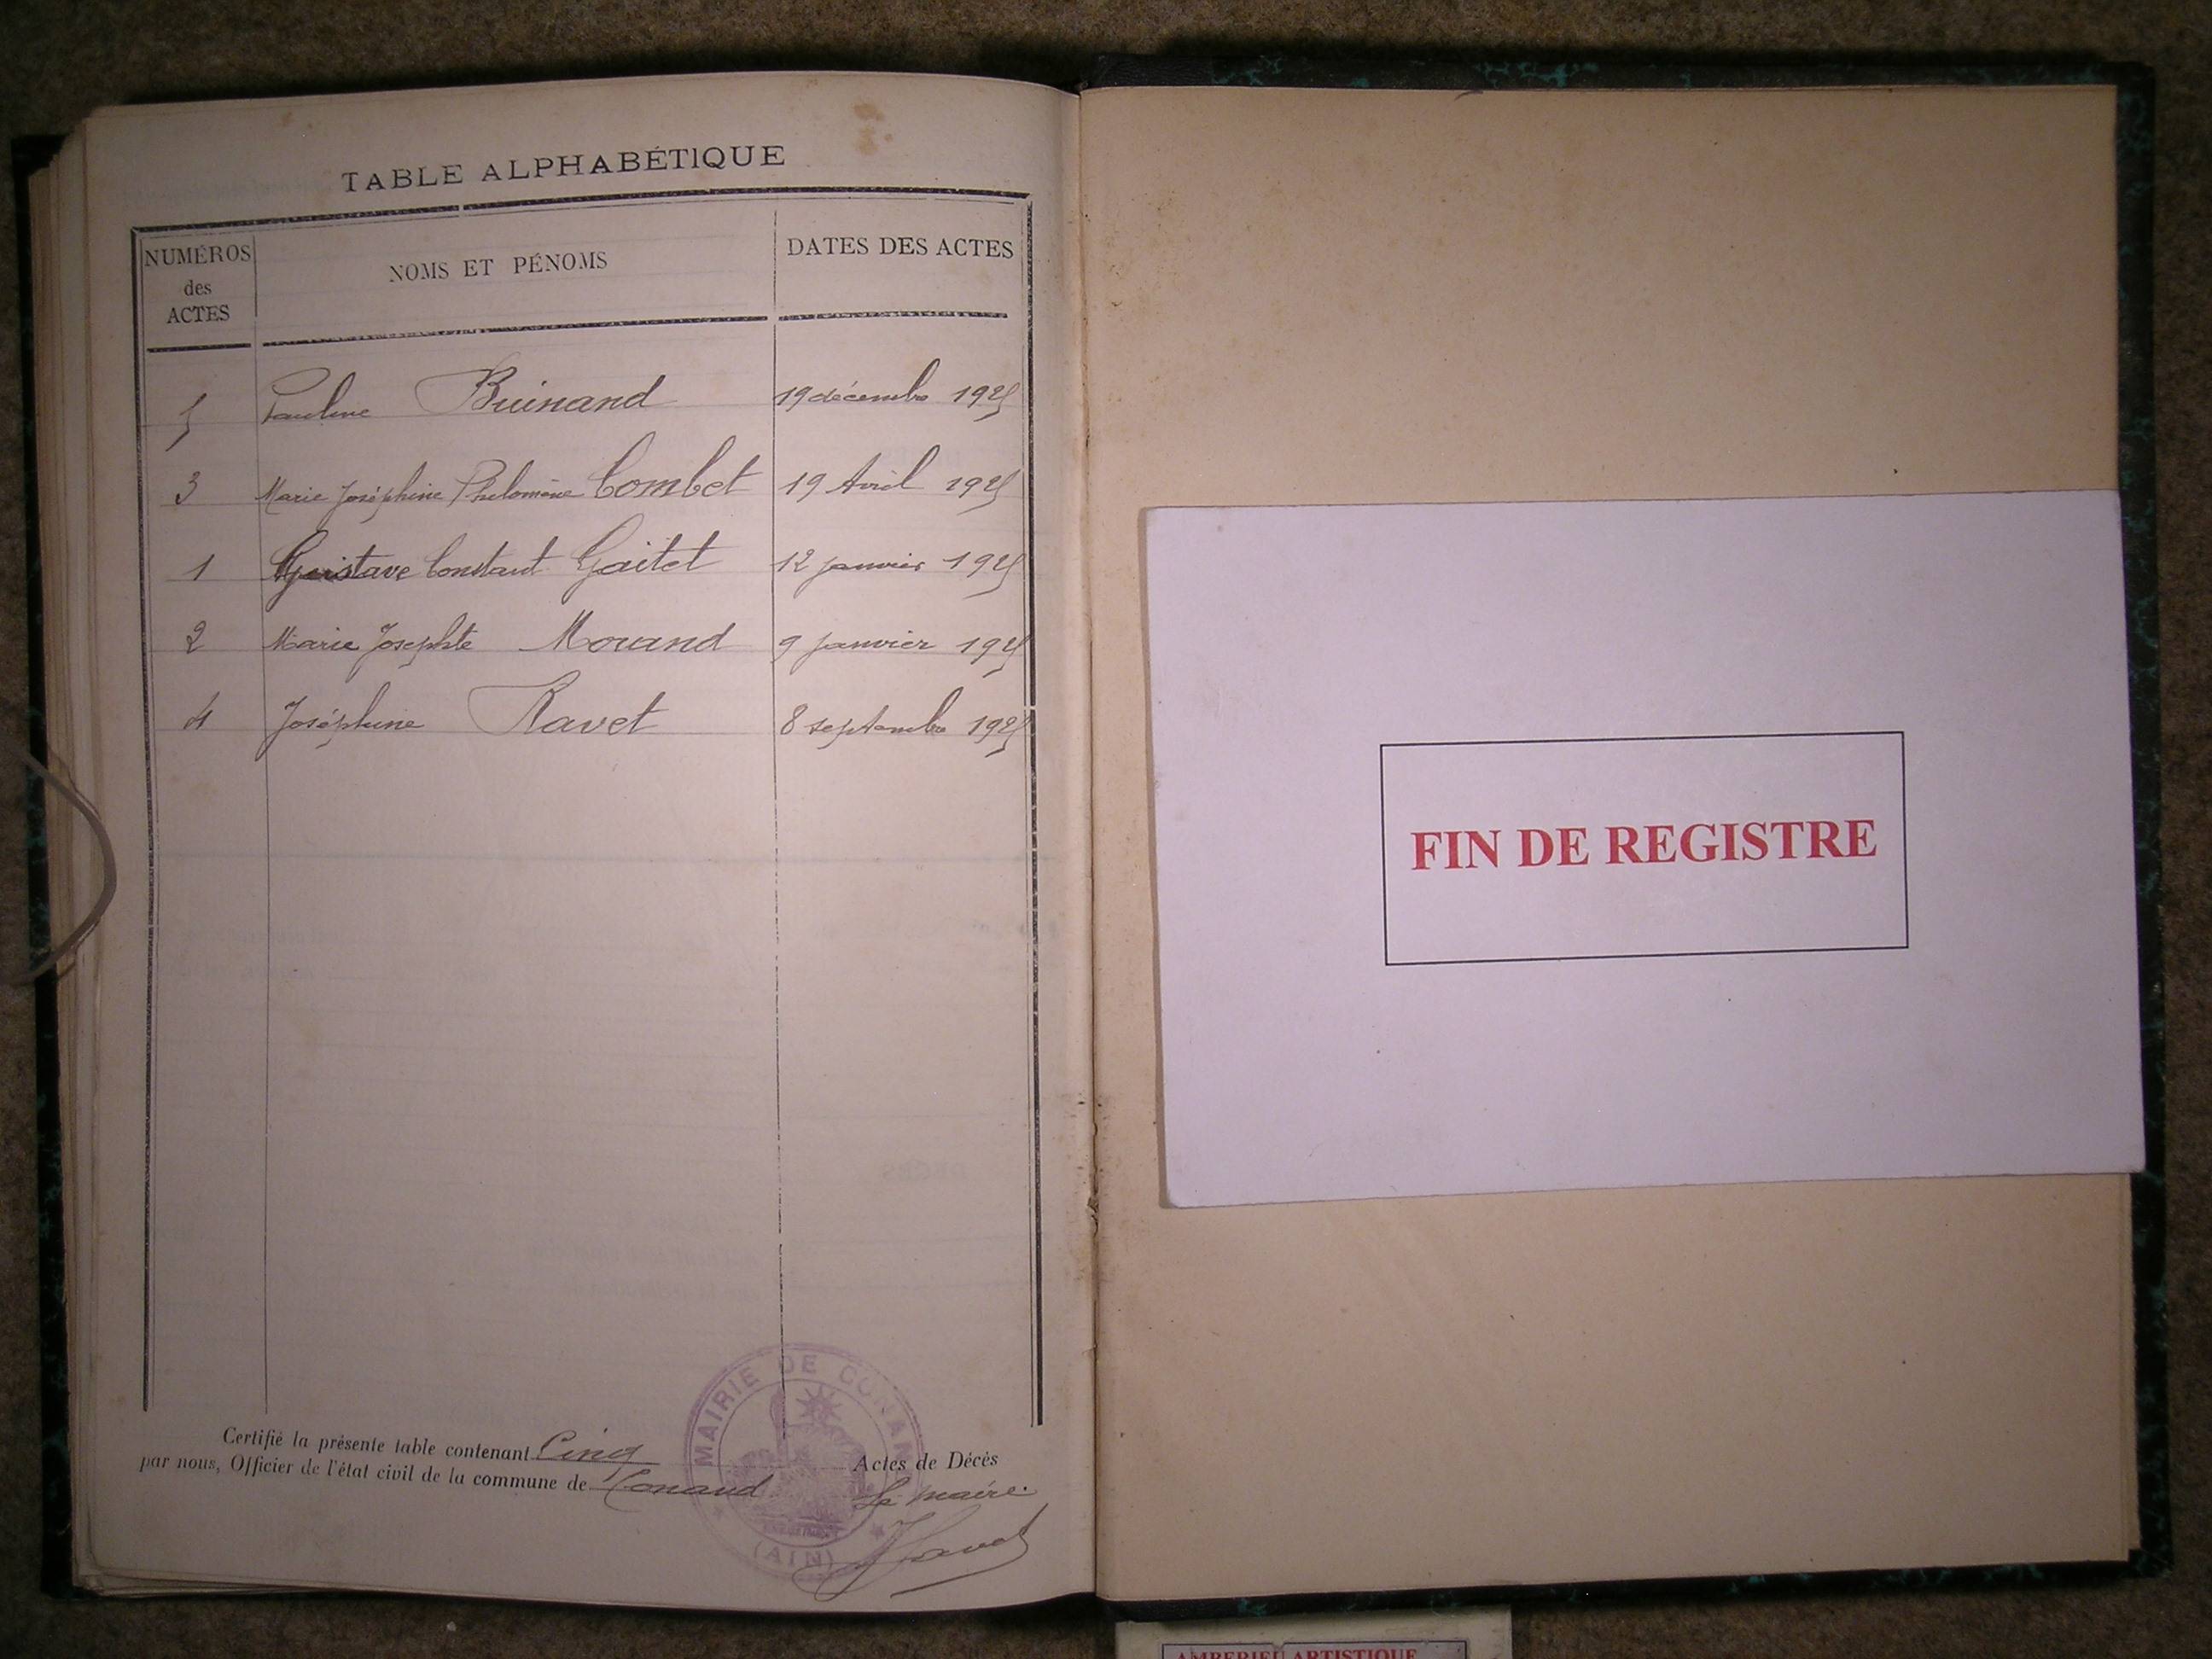 TABLE ALPHABÉTIQUE
NUMÉROS des ACTES NOMS ET PÉNOMS DATES DES ACTES
5 Pauline Buinand 19 décembre 1925
3 Marie Joséphine Philomène Combet 19 Avril 1925
1 Gustave Constant Gaitet 12 janvier 1925
2 Marie Josephte Morand 9 janvier 1925
4 Joséphine Ravet 8 septembre 1925
Certifié la présente table contenant Cinq Actes de Décès
par nous, Officier de l'état civil de la commune de Conand Le maire.
MAIRIE DE CONAND
(AIN)
FIN DE REGISTRE
AMBERIEU ARTISTIQUE